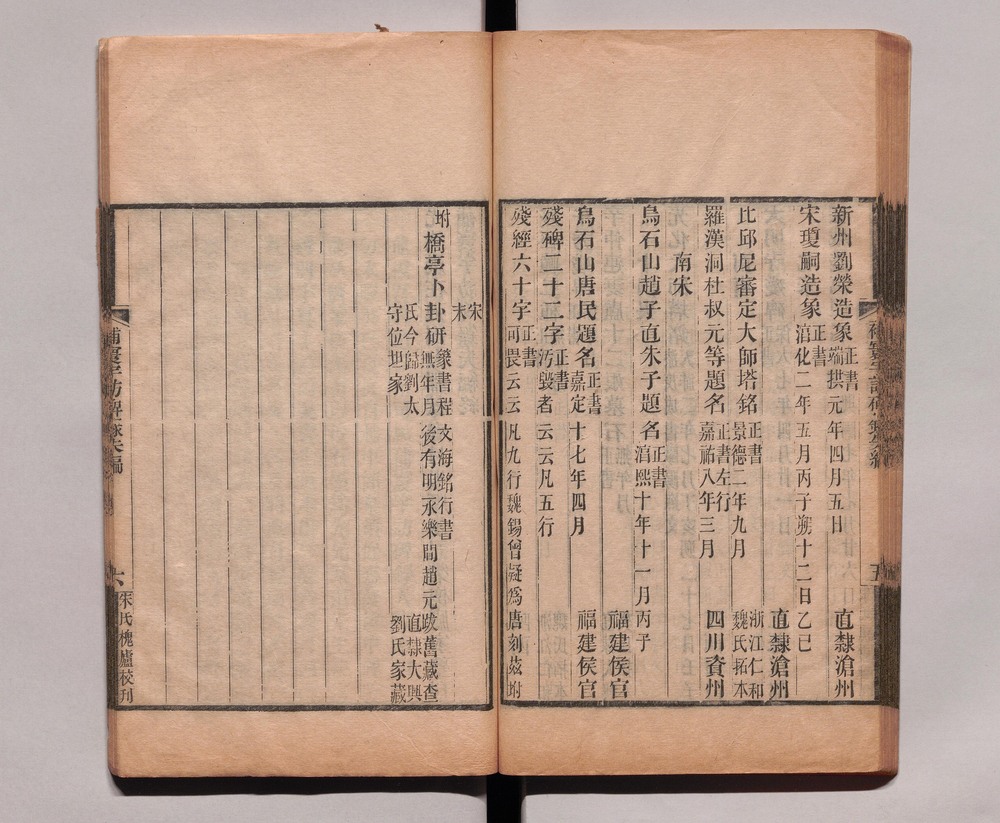 新州劉榮造象 正書 端拱元年四月五日 直隸滄州
宋瓊嗣造象 正書 淯化二年五月丙子朔十二日乙巳 直隸滄州
比邱尼審定大師塔銘 正書 景德二年九月 浙江仁和 魏氏拓本
羅漢洞杜叔元等題名 正書左行 嘉祐八年三月 四川資州
南宋
烏石山趙子直朱子題名 正書 淯熙十年十一月丙子 福建侯官
烏石山唐民題名 正書 嘉定十七年四月 福建侯官
殘碑二十二字 正書 汸毀者云云凡五行
殘經六十字 正書 可畏云云凡九行魏錫曾疑爲唐刻茲坿
宋末
坿橋亭卜卦研 篆書程文海銘行書 無年月後有明永樂間趙元跋舊藏查
氏今歸劉太守位坦家 直隸大興劉氏家藏
六
朱氏槐廬校刊
五